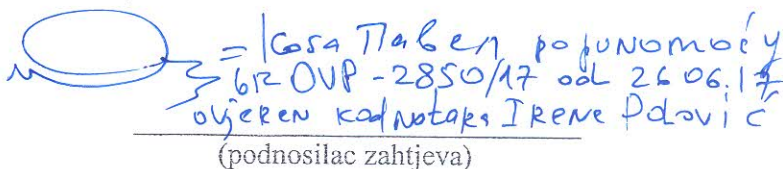 = Kosa Павел po punomoćy
br OVP - 2850/17 od 26.06.17
ovjeren kod notara Irene Polović
(podnosilac zahtjeva)